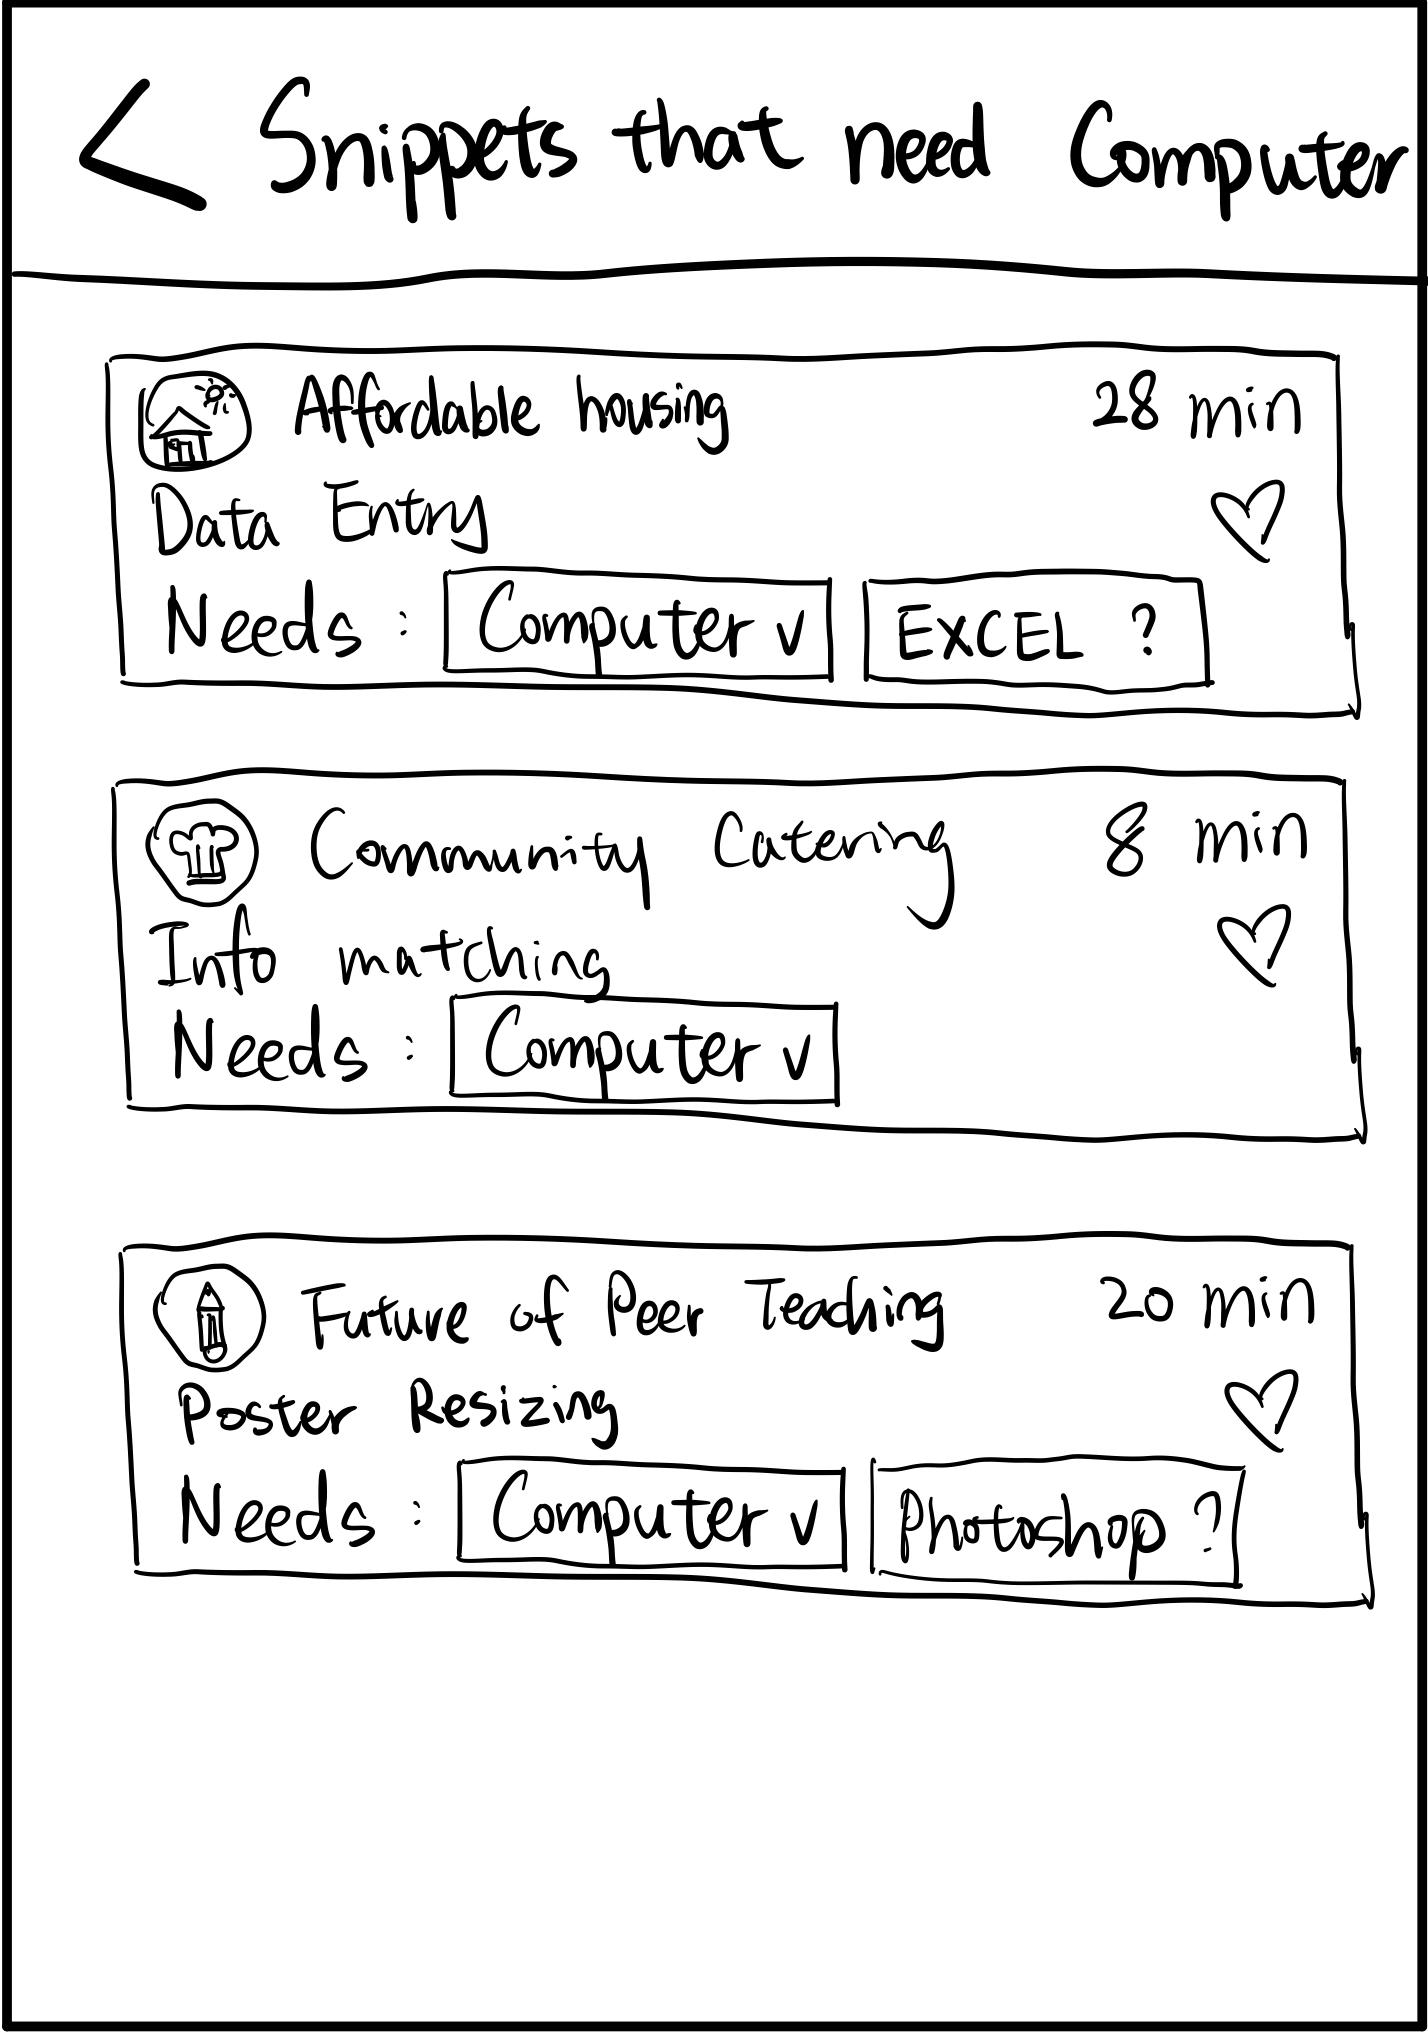 < Snippets that need Computer
Affordable housing 28 min
Data Entry
Needs : Computer ✓ EXCEL ?
Community Catering 8 min
Info matching
Needs : Computer ✓
Future of Peer Teaching 20 min
Poster Resizing
Needs : Computer ✓ Photoshop ?